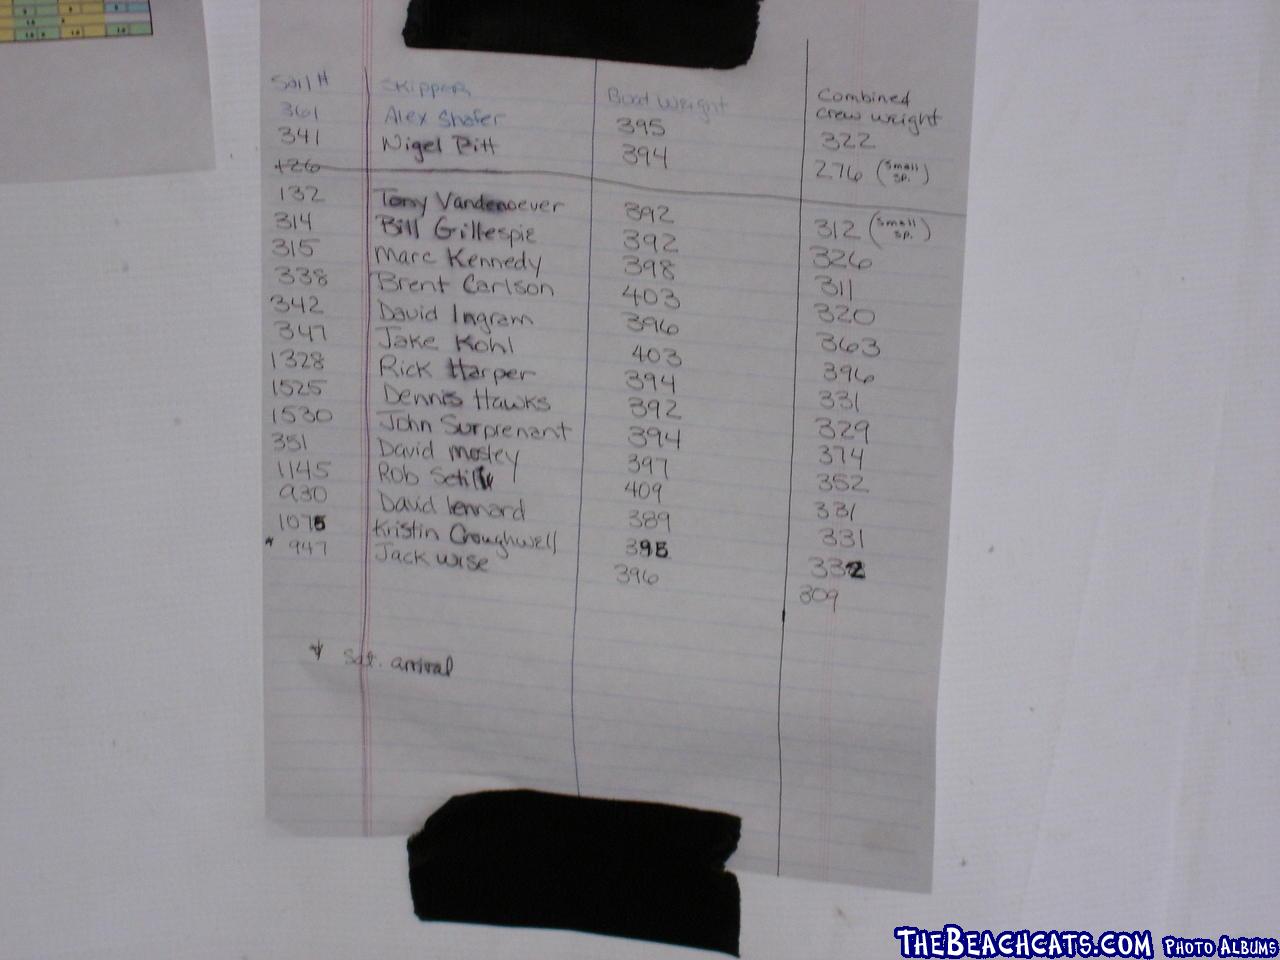 Sail # Skipper Boat Weight Combined crew weight
361 Alex Shafer 395 322
341 Nigel Pitt 394 276 (small sp.)
126
132 Tony Vandenoever 392 312 (small sp.)
314 Bill Gillespie 392 326
315 Marc Kennedy 398 311
338 Brent Carlson 403 320
342 David Ingram 396 363
347 Jake Kohl 403 396
1328 Rick Harper 394 331
1525 Dennis Hawks 392 329
1530 John Surprenant 394 374
351 David mosley 397 352
1145 Rob 409 331
930 David lennard 389 331
1075 Kristin Croughwell 395 332
* 947 Jack wise 396 309
* Sat. arrival
TheBeachcats.com Photo Albums